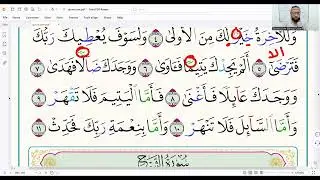 وَلَلْآخِرَةُ خَيْرٌ لَّكَ مِنَ ٱلْأُولَىٰ ٤ وَلَسَوْفَ يُعْطِيكَ رَبُّكَ
الا
فَتَرْضَىٰٓ ٥ أَلَمْ يَجِدْكَ يَتِيمًا فَـَٔاوَىٰ ٦ وَوَجَدَكَ ضَآلًّا فَهَدَىٰ ٧
وَوَجَدَكَ عَآئِلًا فَأَغْنَىٰ ٨ فَأَمَّا ٱلْيَتِيمَ فَلَا تَقْهَرْ ٩
وَأَمَّا ٱلسَّآئِلَ فَلَا تَنْهَرْ ١٠ وَأَمَّا بِنِعْمَةِ رَبِّكَ فَحَدِّثْ ١١
سُورَةُ ٱلشَّرْحِ